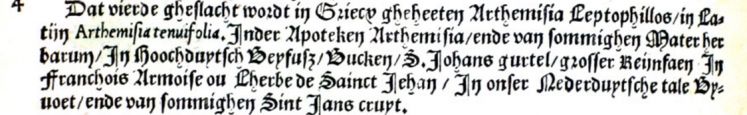 4 Dat vierde gheslacht wordt in Griecx gheheeten Arthemisia Leptophillos/in La⸗
tijn Arthemisia tenuifolia. Inder Apoteken Arthemisia/ende van sommighen Mater her
barum/In Hoochduytsch Beyfusz/Bucken/S. Johans gurtel/grosser Reijnfaen In
Franchois Armoise ou Lherbe de Sainct Jehan / In onser Nederduytsche tale By⸗
uoet/ende van sommighen Sint Jans cruyt.